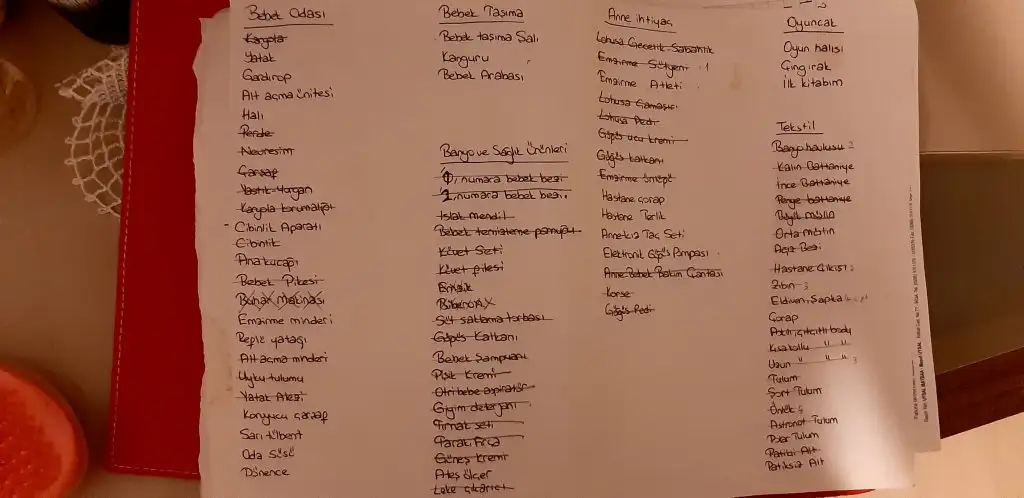 Bebek Odası
Karyola
Yatak
Gardırop
Alt açma ünitesi
Halı
Perde
Nevresim
Çarşap
Yastık-Yorgan
Karyola koruması
Cibinlik Aparatı
Cibinlik
Ana kucağı
Bebek Pikesi
Buhar Makinası
Emzirme minderi
Reflü yatağı
Alt açma minderi
Uyku tulumu
Yatak Alezi
Koruyucu çarşap
Sarı tülbent
Oda Süsü
Dönence
Bebek Taşıma
Bebek taşıma Şalı
Kanguru
Bebek Arabası
Banyo ve Sağlık Ürünleri
numara bebek bezi
2. numara bebek bezi.
Islak mendil
Bebek temizleme pamuğu
Küvet Seti
Küvet filesi
Emzik
Biberon
Süt saklama torbası
Göğüs Kalkanı
Bebek Şampuanı
Pişik Kremi
Otribebe aspiratör
Giyim deterjanı
Tırnak seti
Tarak, Fırça
Güneş kremi
Ateş ölçer
Leke çıkarıcı
Anne ihtiyaç
Lohusa Gecelik-Sabahlık
Emzirme Sütyeni
Emzirme Atleti
Lohusa Gamaşır
Lohusa Pedi
Göğüs ucu kremi
Göğüs kalkanı
Emzirme önlüğü
Hastane çorap
Hastane Terlik
Anne-kız Taç Seti
Elektronik Göğüs Pompası
Anne Bebek Bakım Çantası
Korse
Göğüs Pedi
Oyuncak
Oyun halısı
Çıngırak
İlk kitabım
Tekstil
Banyo havlusu 2
Kalın Battaniye
İnce Battaniye
Penye battaniye
Büyük müslin
Orta müslin
Ağız Bezi
Hastane Çıkışı
Zıbın 3
Eldiven, Şapka
Çorap
Patik, çıtçıtlı body
Kısa kollu " "
Uzun " " " 3
Tulum
Şort Tulum
Önlük
Astronot Tulum
Polar Tulum
Patikli Alt
Patiksiz Alt